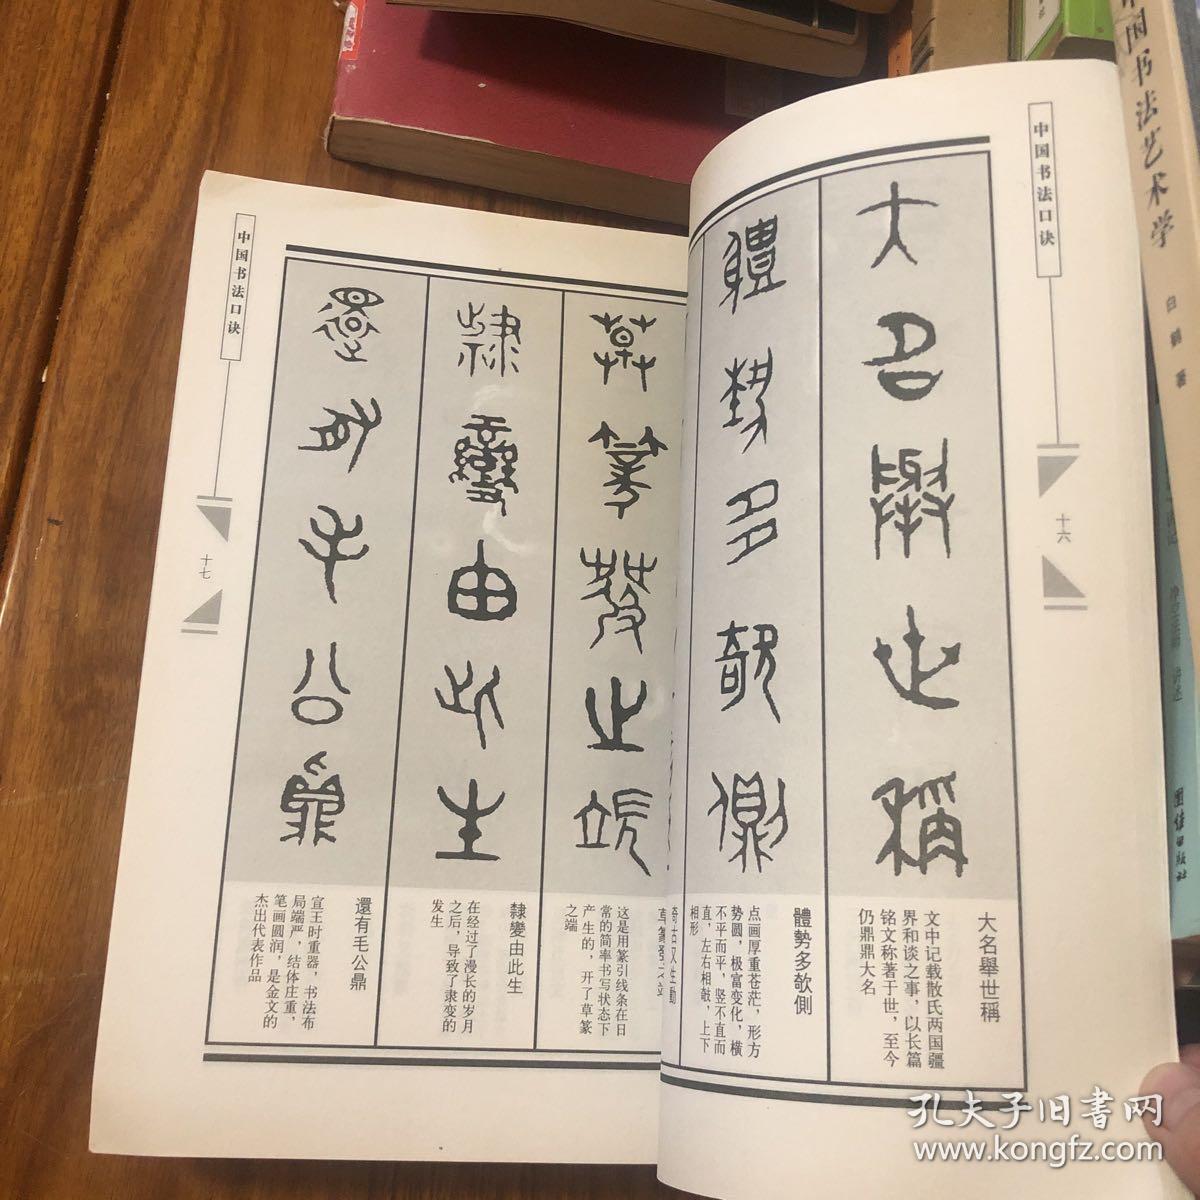 中国书法口诀
十六
大名舉世稱
大名舉世稱
文中记载散氏两国疆
界和谈之事，以长篇
铭文称著于世，至今
仍鼎鼎大名
體勢多欹側
體勢多欹側
点画厚重苍茫，形方
势圆，极富变化，横
不平而平，竖不直而
直，左右相敧，上下
相形
草篆發之端
这是用篆引线条在日
常的简率书写状态下
产生的，开了草篆
之端
隸變由此生
隸變由此生
在经过了漫长的岁月
之后，导致了隶变的
发生
還有毛公鼎
還有毛公鼎
宣王时重器，书法布
局端严，结体庄重，
笔画圆润，是金文的
杰出代表作品
中国书法口诀
十七
中国书法艺术学
白鹤 著
团结出版社
孔夫子旧書网
www.kongfz.com